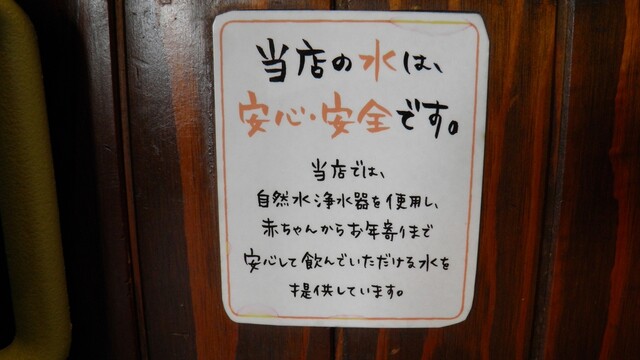 当店の水は、
安心・安全です。
当店では、
自然水浄水器を使用し、
赤ちゃんからお年寄りまで
安心して飲んでいただける水を
提供しています。